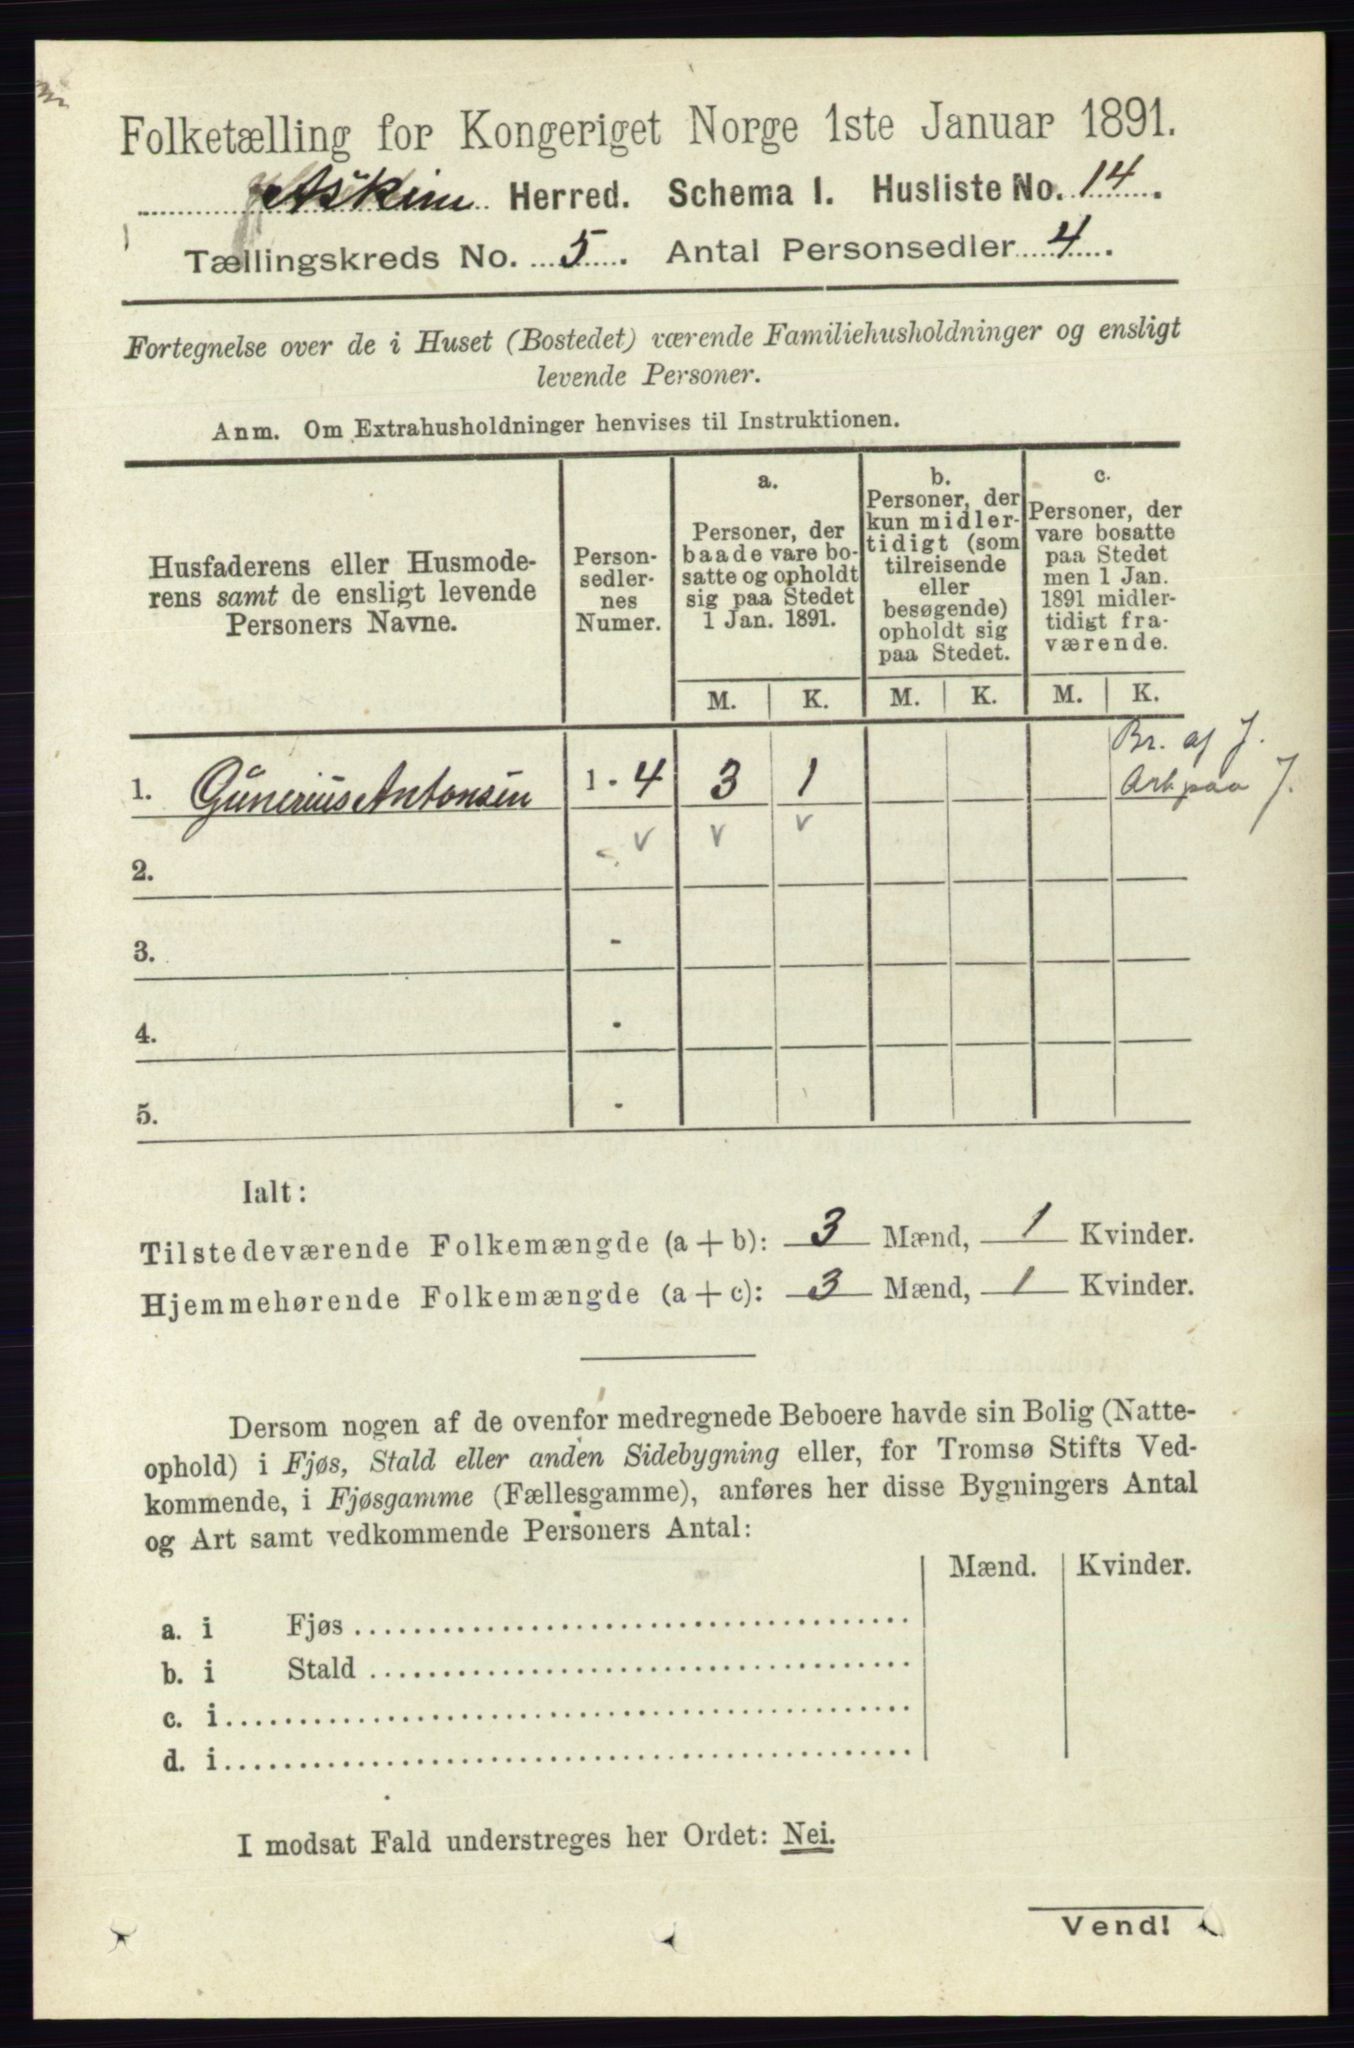 Folketælling for Kongeriget Norge 1ste Januar 1891.
Askim Herred. Schema I. Husliste No. 14.
Tællingskreds No. 5. Antal Personsedler 4.
Fortegnelse over de i Huset (Bostedet) værende Familiehusholdninger og ensligt
levende Personer.
Anm. Om Extrahusholdninger henvises til Instruktionen.
Husfaderens eller Husmode-
rens samt de ensligt levende
Personers Navne.
Person-
sedler-
nes
Numer.
a.
Personer, der
baade vare bo-
satte og opholdt
sig paa Stedet
1 Jan. 1891.
b.
Personer, der
kun midler-
tidigt (som
tilreisende
eller
besøgende)
opholdt sig
paa Stedet.
c.
Personer, der
vare bosatte
paa Stedet
men 1 Jan.
1891 midler-
tidigt fra-
værende.
M. K. M. K. M. K.
Br. af J.
1. Gunerius Antonsen 1 - 4 3 1 Arb paa J.
v v v
2. -
3. -
4. -
5. -
Ialt:
Tilstedeværende Folkemængde (a + b): 3 Mænd, 1 Kvinder.
Hjemmehørende Folkemængde (a + c): 3 Mænd, 1 Kvinder.
Dersom nogen af de ovenfor medregnede Beboere havde sin Bolig (Natte-
ophold) i Fjøs, Stald eller anden Sidebygning eller, for Tromsø Stifts Ved-
kommende, i Fjøsgamme (Fællesgamme), anføres her disse Bygningers Antal
og Art samt vedkommende Personers Antal:
Mænd. Kvinder.
a. i Fjøs
b. i Stald
c. i
d. i
I modsat Fald understreges her Ordet: Nei.
Vend!